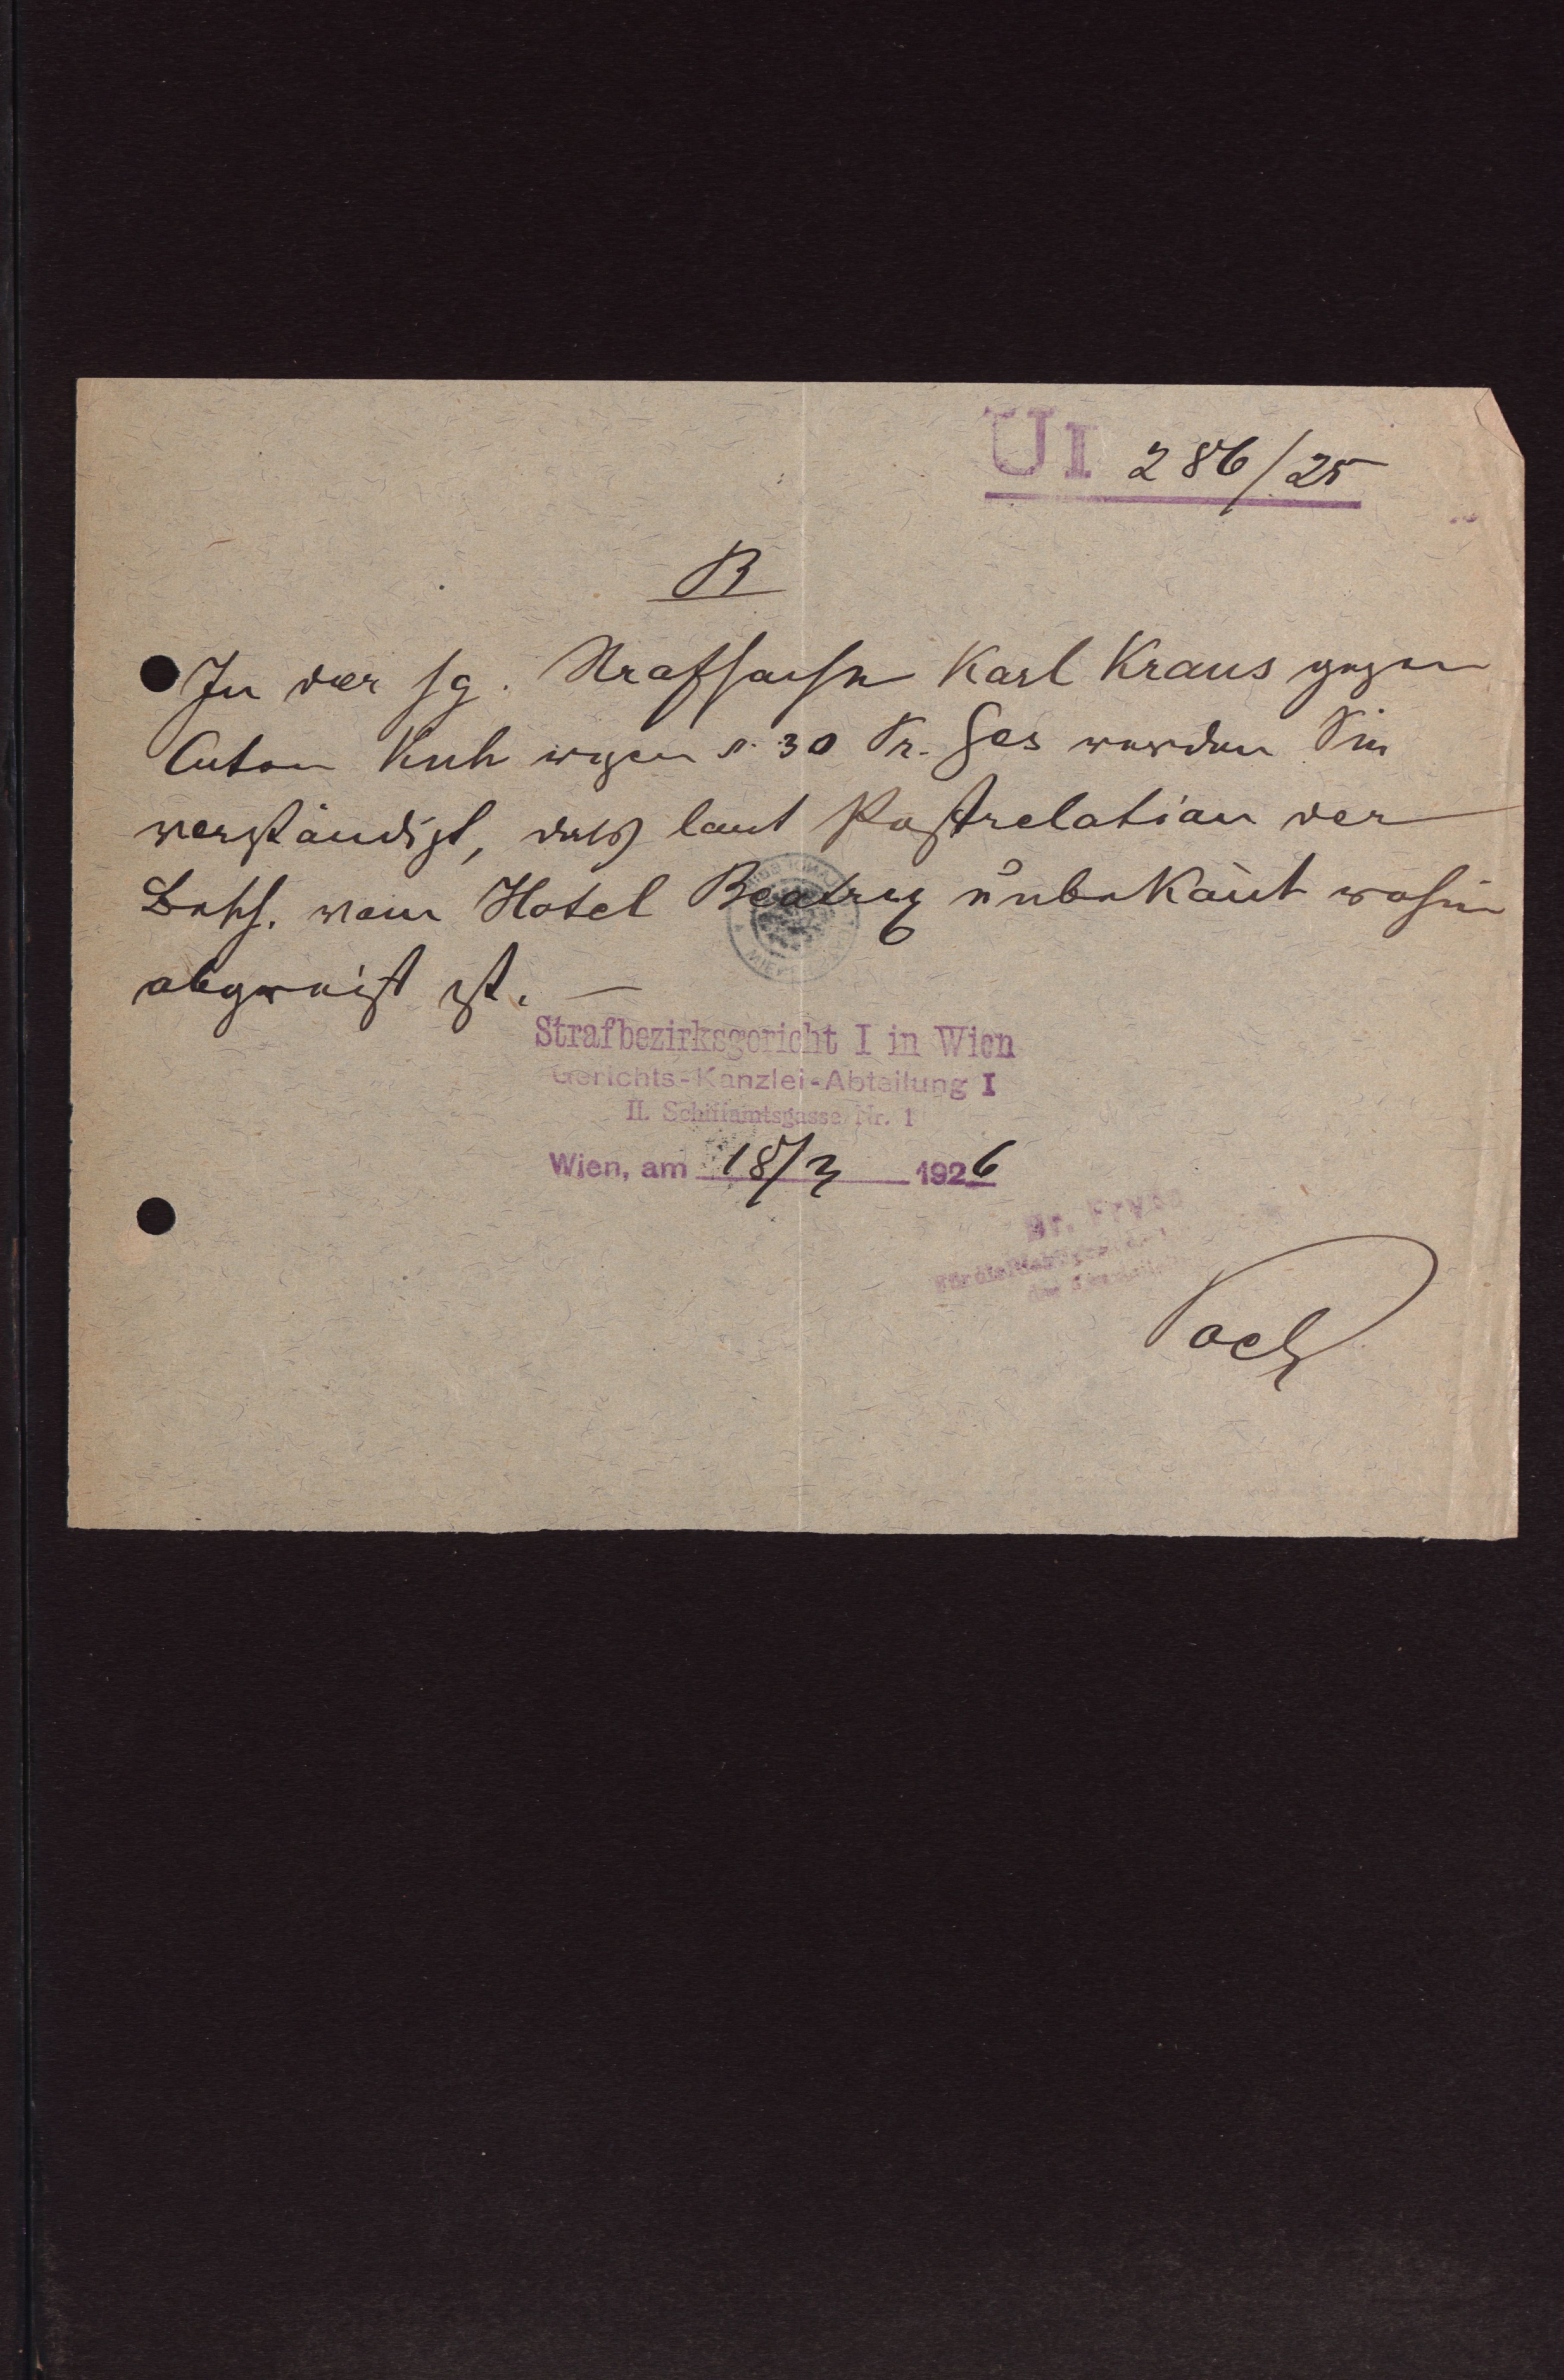 UI 286/25
B
In der hg. Strafsache Karl Kraus gegen
Anton Kuh wegen § 30 Pr. Ges werden Sie
verständigt, daß laut Postrelation der
Besch. vom Hotel Beatrix unbekannt wohin
abgereist ist. —
Strafbezirksgericht I in Wien
Gerichts-Kanzlei-Abteilung I
II. Schiffamtsgasse Nr. 1
Wien, am 18/3 1926